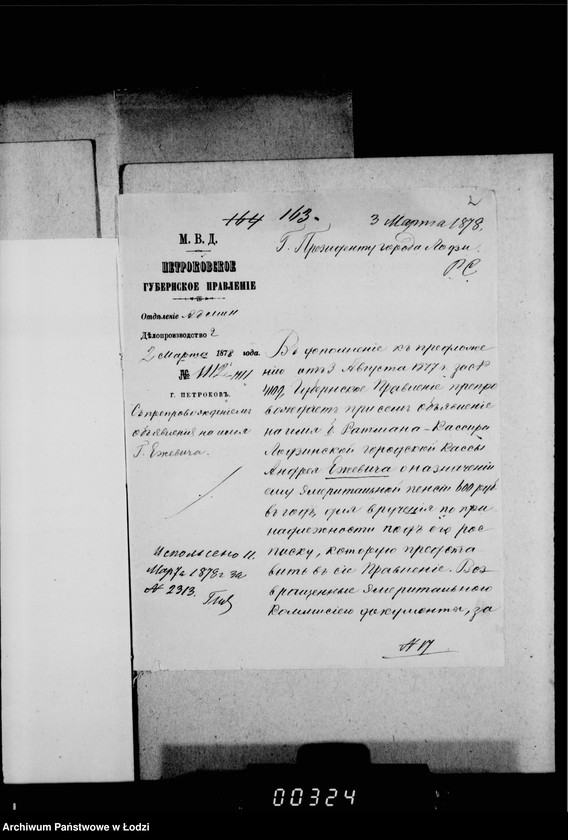 2
164 163.
3 Марта 1878.
М. В. Д.
ПЕТРОКОВСКОЕ
ГУБЕРНСКОЕ ПРАВЛЕНІЕ
Отдѣленіе Админ
Дѣлопроизводство 2
2 Марта 1878 года.
№
Г. ПЕТРОКОВЪ.
Съ препровожденіемъ
объявленія на имя
Г. Ежевича.
Исполнено 11.
Марта 1878 г за
№ 2313.
Г. Президенту города Лодзи.
Въ дополненіе къ предложе
нію отъ 3 Августа 1877 г за №
Губернское Правленіе препро
вождаетъ при семъ объявленіе
на имя б. Ратмана-Кассира
Лодзинской городской Кассы
Андрея Ежевича о назначеніи
ему Эмеритальной пенсіи 600 руб.
въ годъ, для врученія по при
надлежности подъ его рос
писку, которую предста
вить въ сіе Правленіе. Воз
вращенные Эмеритального
Коммисіею документы, за
№ 17
00324
Archiwum Państwowe w Łodzi